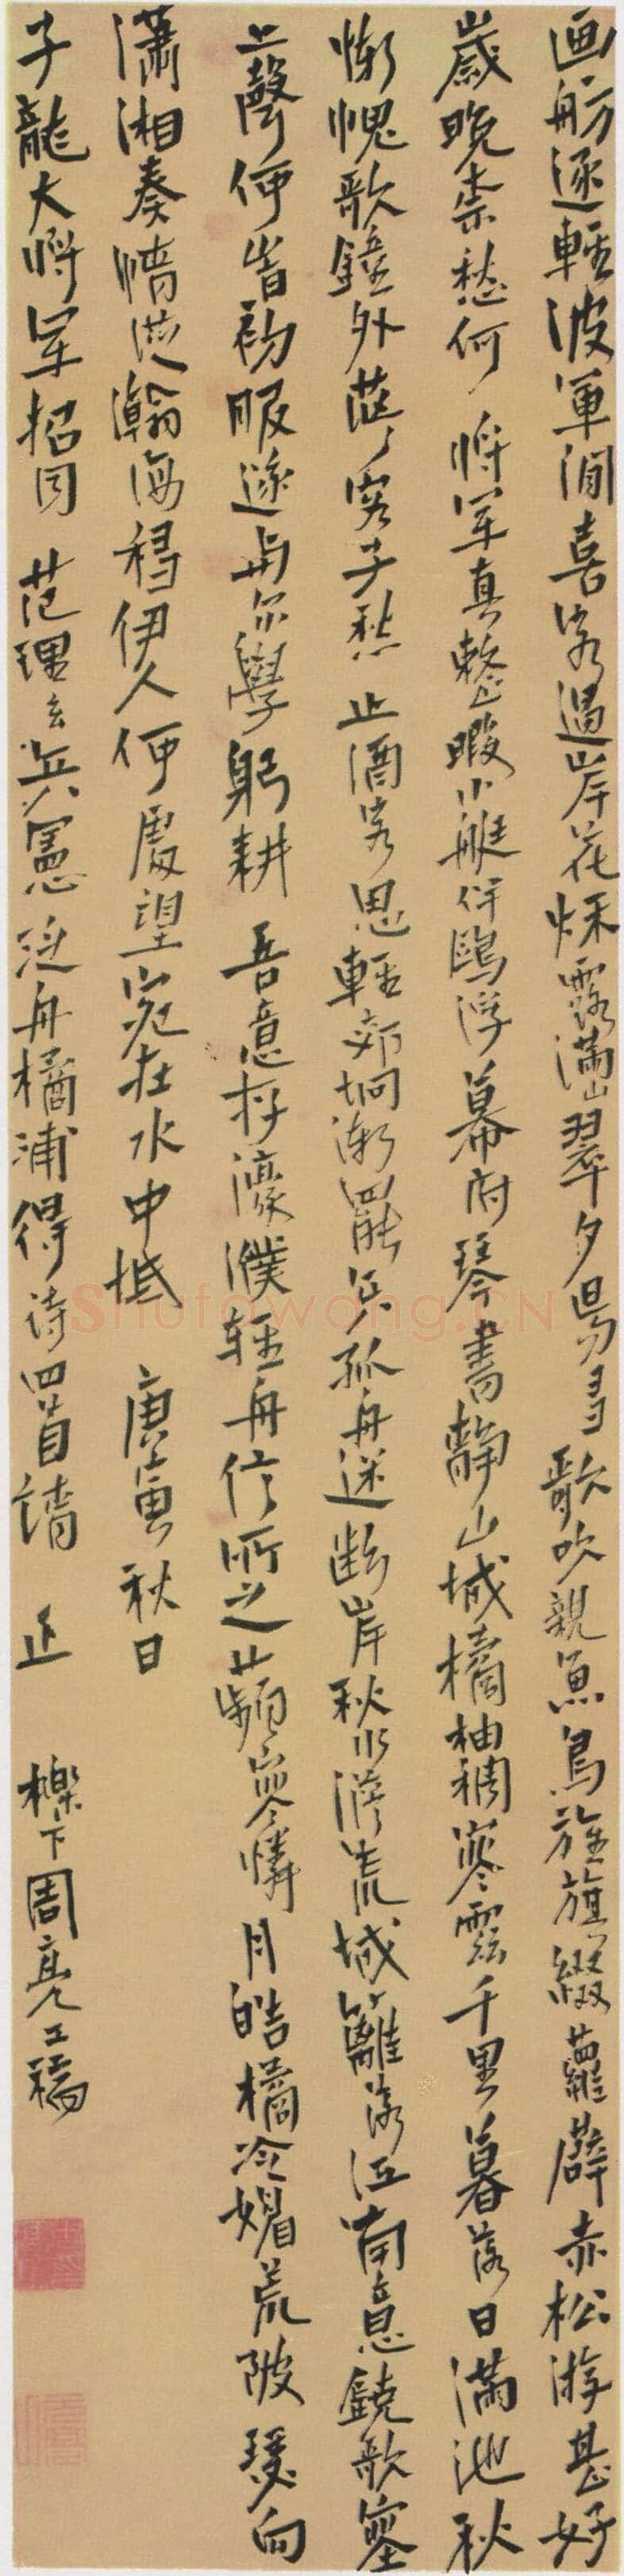 画舫逐輕波軍閒喜客過岸花烁露滿山翠夕昜多歌吹親魚鳥旌旗綴蘿薜赤松游甚好
歲晩柰愁何將軍真整暇小艇伴鷗浮幕府琴書靜山城橘柚稠寒雲千里暮落日滿池秋
慚愧歌鐘外茫々客子愁止酒客思輕郊坰漸罷兵孤舟迷斷岸秋水澹荒城籬落江南意鐃歌塞
上聲何當初服遂與尔學躬耕吾意存濠濮輕舟信所之蘋寒憐月皓橘冷媚荒陂瑟向
瀟湘奏情從瀚海移伊人何處望宛在水中坻庚寅秋日
子龍大將军招同范理玄兵憲泛舟橘浦得詩四首請正櫟下周亮工稿
Shufawang.CN